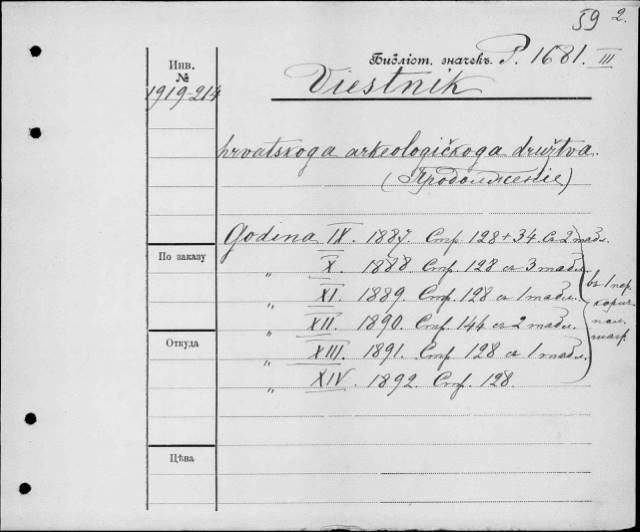 59 2.
Инв.
№
1919-214
Библіот. значекъ. P. 1681. III
Viestnik
hrvatskoga arkeologičkoga družtva.
(Продолженіе)
Godina IX. 1887. Стр. 128+34 съ 2 табл.
" X. 1888 Стр. 128 съ 3 табл.
" XI. 1889. Стр. 128 съ 1 табл.
" XII. 1890. Стр. 144 съ 2 табл.
" XIII. 1891. Стр. 128 съ 1 табл.
" XIV. 1892. Стр. 128.
въ 1 пор.
корич.
пол.
шагр.
По заказу
Откуда
Цѣна